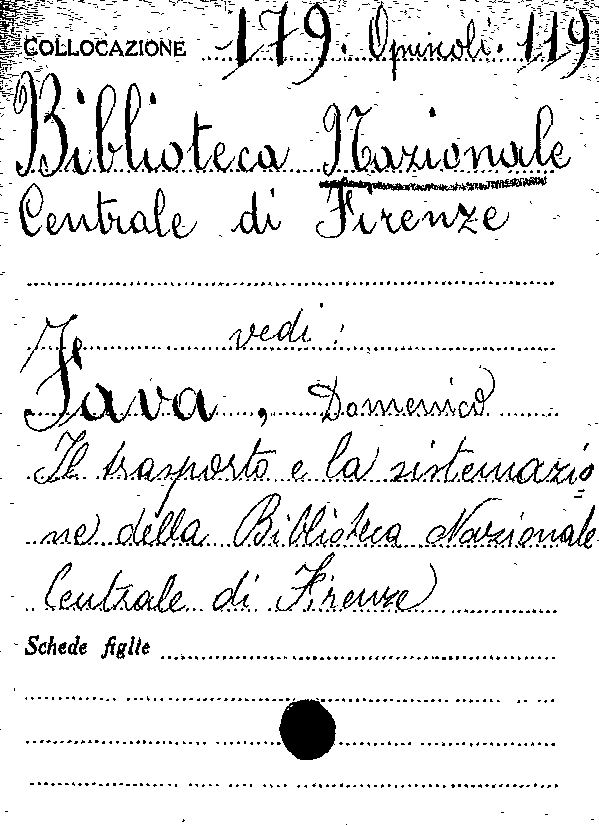 COLLOCAZIONE 179. Opuscoli. 119
Biblioteca Nazionale
Centrale di Firenze
vedi:
Fava, Domenico
Il trasporto e la sistemazio=
ne della Biblioteca Nazionale
Centrale di Firenze
Schede figlie